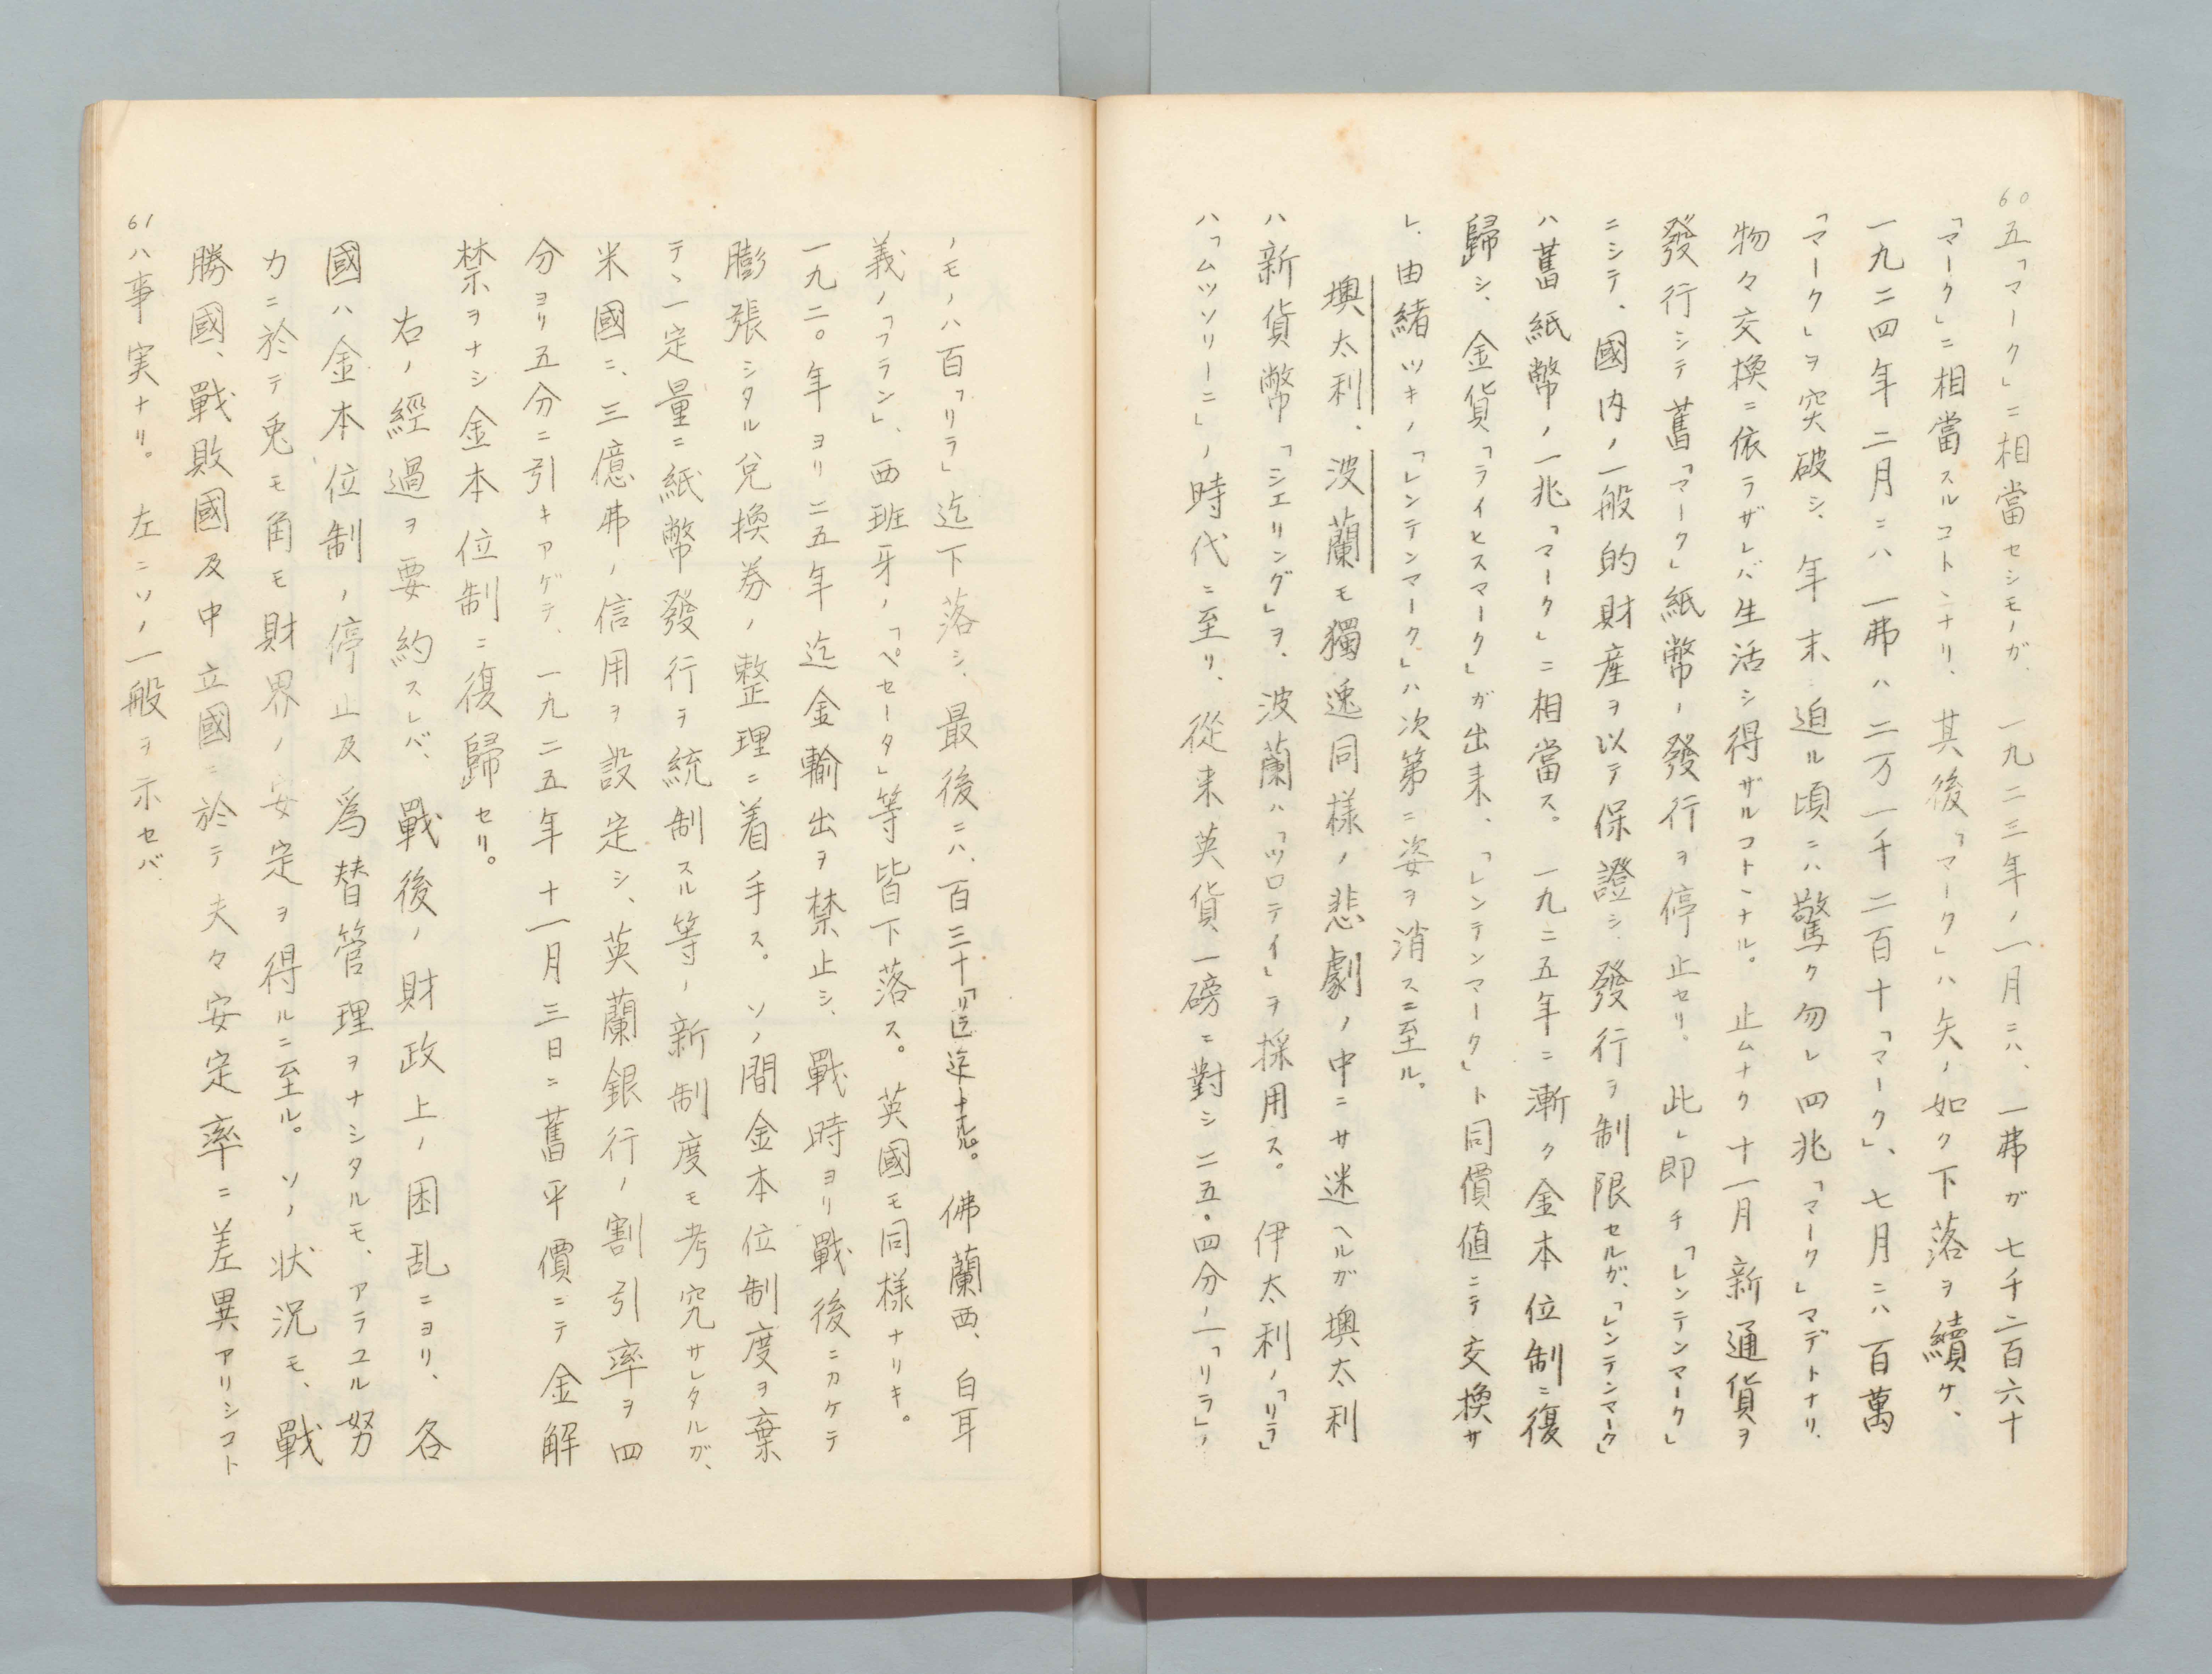 60
五「マーク」ニ相當セシモノガ、一九二三年ノ一月ニハ、一弗ガ七千二百六十
「マーク」ニ相當スルコトヽナリ、其後「マーク」ハ矢ノ如ク下落ヲ續ケ、
一九二四年二月ニハ一弗ハ二万一千二百十「マーク」、七月ニハ百萬
「マーク」ヲ突破シ、年末迫ル頃ニハ驚ク勿レ四兆「マーク」マデトナリ、
物々交換ニ依ラザレバ生活シ得ザルコトヽナル。止ムナク十一月新通貨ヲ
發行シテ舊「マーク」紙幣ノ發行ヲ停止セリ。此レ即チ「レンテンマーク」
ニシテ、國内ノ一般的財産ヲ以テ保證シ、發行ヲ制限セルガ、「レンテンマーク」
ハ舊紙幣ノ一兆「マーク」ニ相當ス。一九二五年ニ漸ク金本位制ニ復
歸シ、金貨「ライヒスマーク」ガ出来、「レンテンマーク」ト同價値ニテ交換サ
レ、由緒ツキノ「レンテンマーク」ハ次第ニ姿ヲ消スニ至ル。
墺太利、波蘭モ獨逸同様ノ悲劇ノ中ニサ迷ヘルガ墺太利
ハ新貨幣「シエリング」ヲ、波蘭ハ「ツロテイ」ヲ採用ス。伊太利ノ「リラ」
ハ「ムツソリーニ」ノ時代ニ至リ、從来英貨一磅ニ對シ二五・四分ノ一「リラ」ノ
ノモノハ百「リラ」迄下落シ、最後ニハ、百三十「リラ」迄ナル。佛蘭西、白耳
義ノ「フラン」、西班牙ノ「ペセータ」等皆下落ス。英國モ同様ナリキ。
一九二〇年ヨリ二五年迄金輸出ヲ禁止シ、戰時ヨリ戰後ニカケテ
膨張シタル兌換券ノ整理ニ着手ス。ソノ間金本位制度ヲ棄
テヽ一定量ニ紙幣發行ヲ統制スル等ノ新制度モ考究サレタルガ、
米國ニ、三億弗ノ信用ヲ設定シ、英蘭銀行ノ割引率ヲ四
分ヨリ五分ニ引キアゲテ、一九二五年十一月三日ニ舊平價ニテ金解
禁ヲナシ金本位制ニ復歸セリ。
右ノ經過ヲ要約スレバ、戰後ノ財政上ノ困乱ニヨリ、各
國ハ金本位制ノ停止及爲替管理ヲナシタルモ、アラユル努
力ニ於テ兎モ角モ財界ノ安定ヲ得ルニ至ル。ソノ状況モ、戰
勝國、戰敗國及中立國ニ於テ夫々安定率ニ差異アリシコト
61
ハ事実ナリ。左ニソノ一般ヲ示セバ、